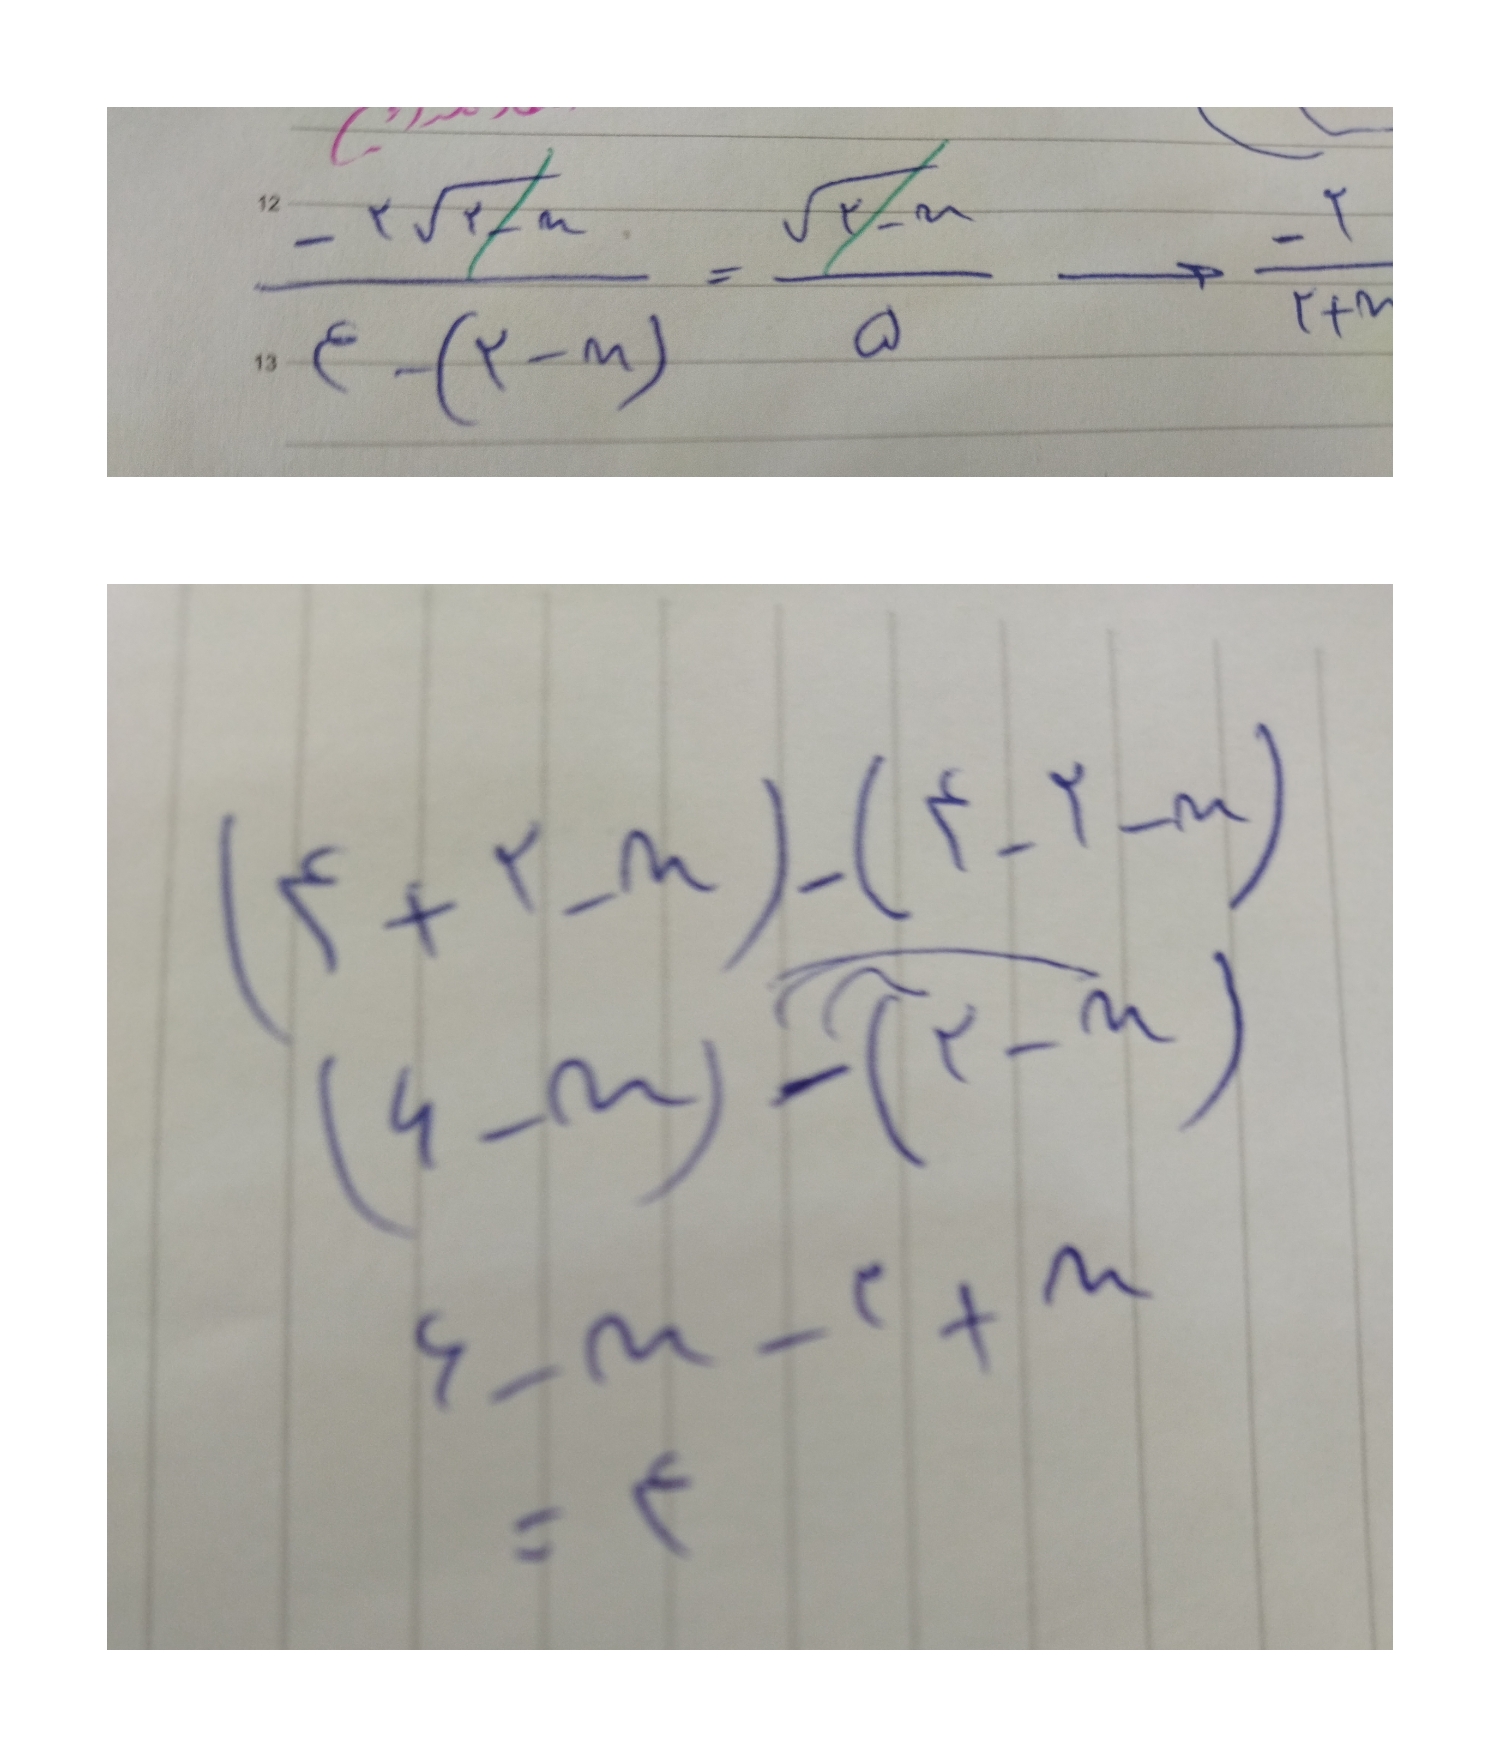 12
-۲√۲-x / ۴-(۲-x) = √۲-x / ۵ → -۲ / ۲+x
13
(۴+۲-x)-(۴-۲-x)
(۶-x)-(۲-x)
۶-x-۲+x
=۴